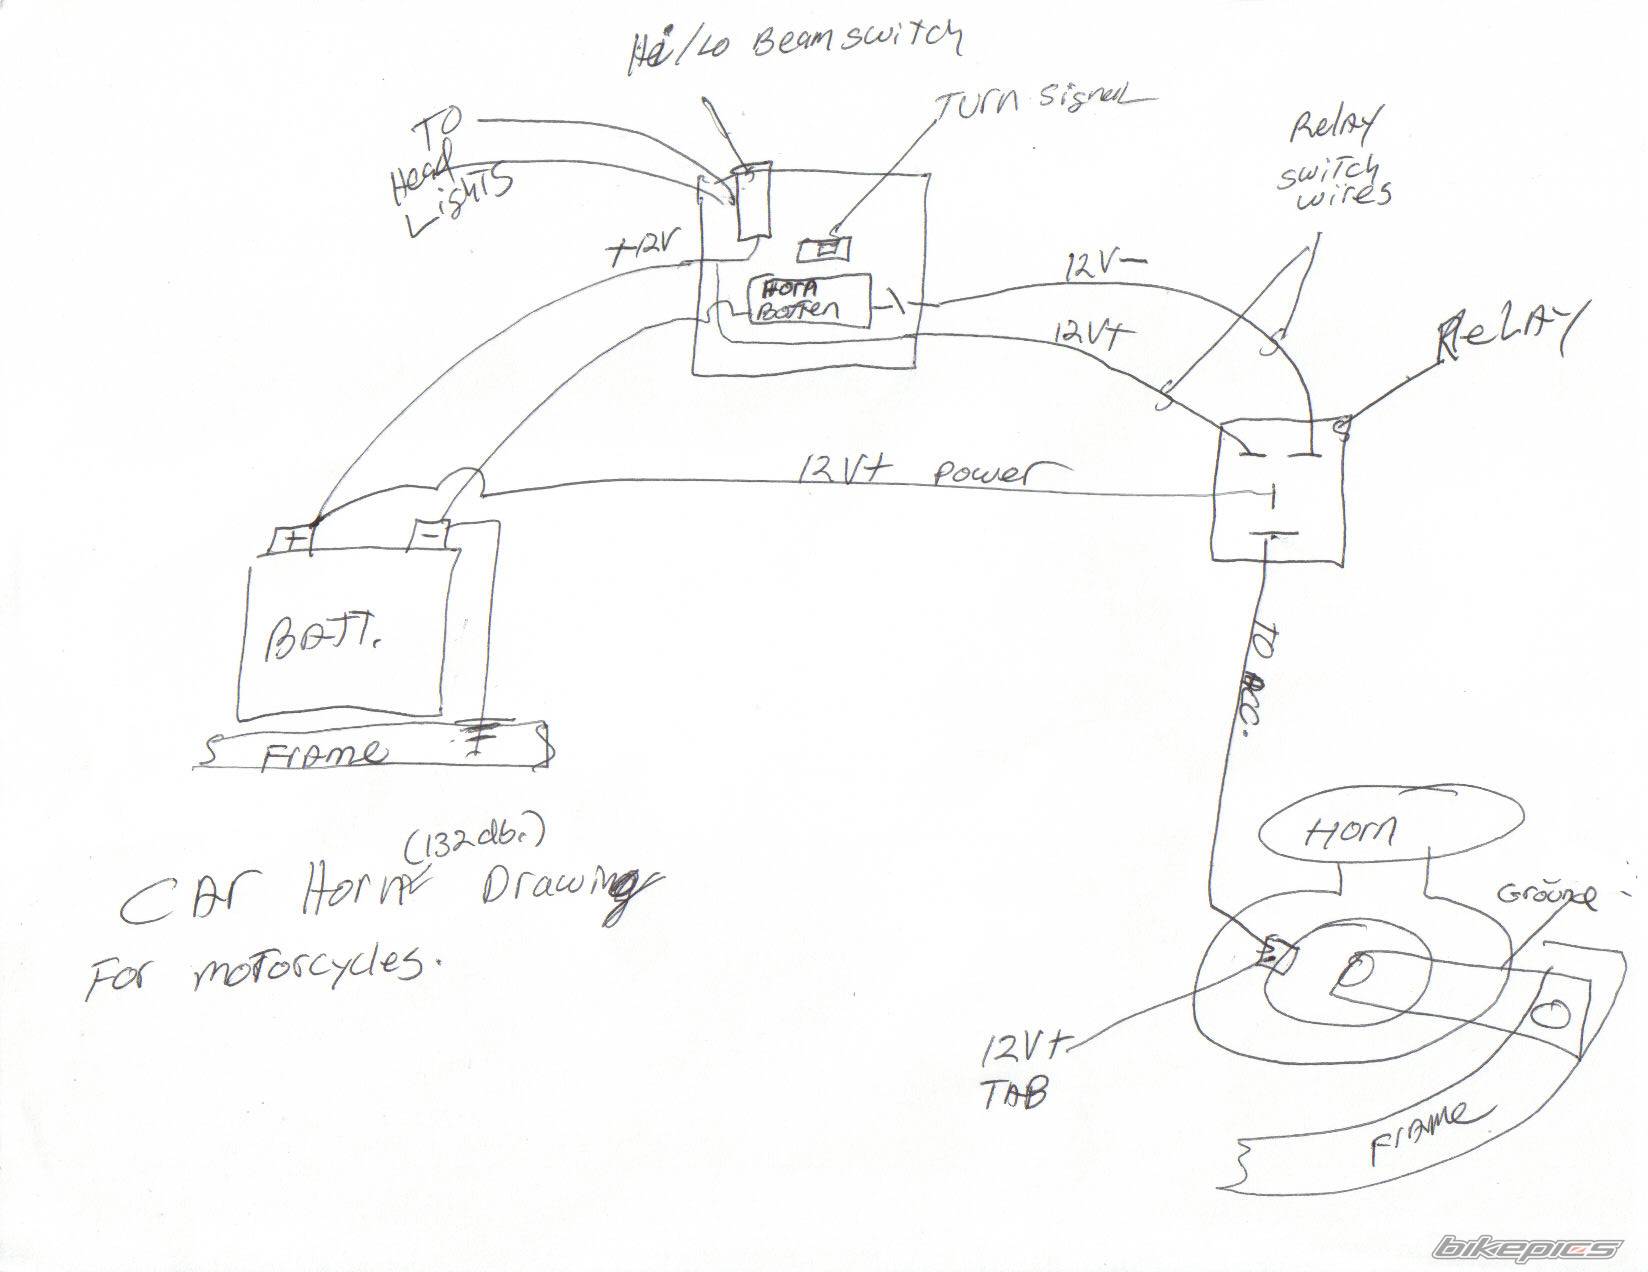 Hi/Lo Beam switch
Turn Signal
TO
Head
Lights
Relay
switch
wires
+12V
12V-
Horn
Botten
12V+
Relay
12V+ power
+
-
BATT.
Frame
TO ACC.
(132db.)
CAr Horn Drawing
For motorcycles.
Horn
Ground
12V+
TAB
Frame
bikepics